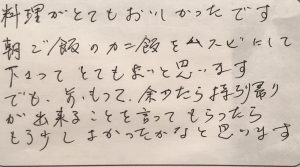 料理がとてもおいしかったです
朝ご飯のカニ飯をムスビにして
下さってとてもよいと思います
でも、前もって、余ったら持ち帰り
が出来ることを言ってもらったら
もう少しよかったかなと思います